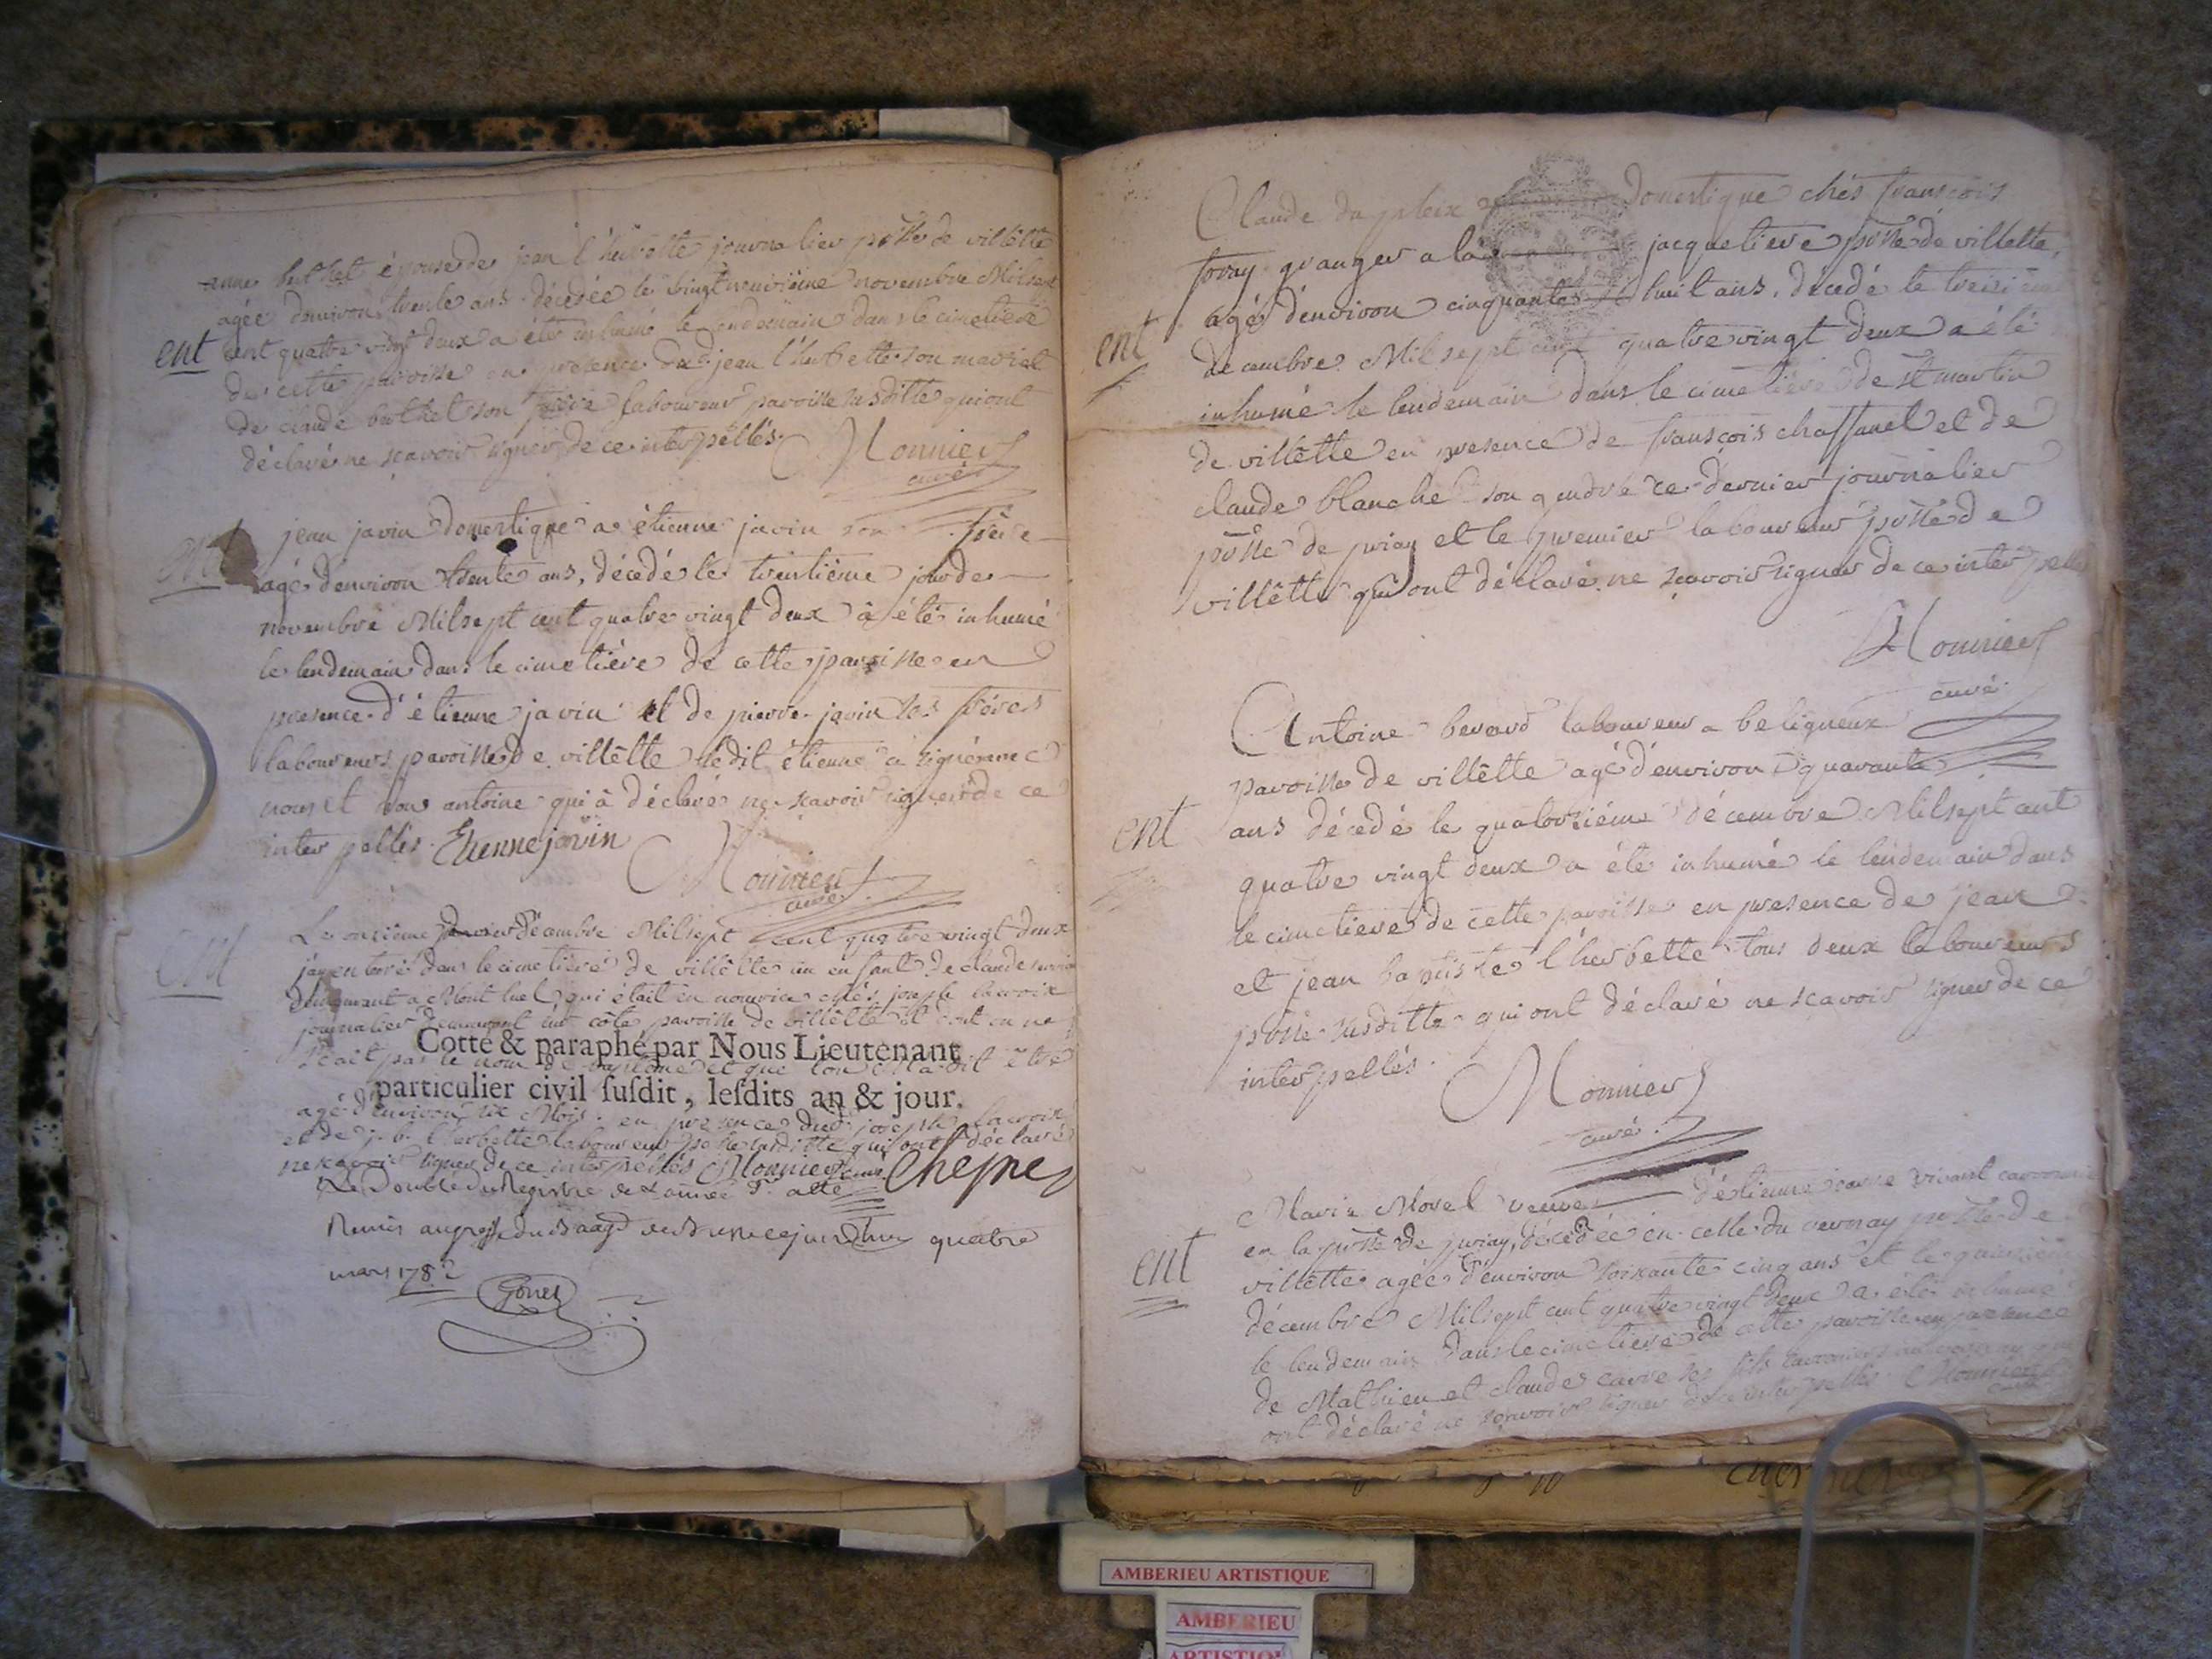 anne berthet épouse de jean l'herbette journalier psse de villette
agée d'environ trente ans décédée le vingt neuvième novembre Mil sept
ent cent quatre vingt deux a été inhumé le lendemain dans le cimetiére
de cette paroisse en presence du d. jean l'herbette son mari et
de claude berthet son frère laboureur paroisse susditte qui ont
déclaré ne scavoir signer de ce interpellés. Monnier
curé
ent jean javin domestique a étienne javin son frère
agé d'environ trente ans, décédé le trentième jour de
novembre Mil sept cent quatre vingt deux à été inhumé
le lendemain dans le cimetiére de cette paroisse en
presence d'étienne javin et de pierre javin ses frères
laboureurs paroisse de villette ledit étienne a signé avec
nous et non antoine qui à déclaré ne scavoir signer de ce
interpellés. Etienne javin Monnier
curé
ent Le onzième décembre Mil sept cent quatre vingt deux
j'ay enterré dans le cimetiére de villette un enfant de claude
demeurant a Montluel, qui était en nourrice chés joseph lacroix
journalier demeurant sur côte paroisse de villette et dont on ne
Cotté & paraphé par Nous Lieutenant
scait pas le nom de baptême et que l'on m'a dit être
particulier civil ſuſdit, leſdits an & jour.
agé d'environ six Mois. en presence dud. joseph lacroix
et de j. b. l'herbette laboureur psse susditte qui ont déclaré
ne scavoir signer de ce interpellés Monnier curé Chesne
Le Double du Registre de l'année dr. a été
Remis au greffe du Baage de Bresse ce jourdhuy quatre
mars 1782
Gonet
Claude du pleix domestique chés franscois
foray granger a la jacquetiere psse de villette,
agé d'environ cinquante huit ans, décedé le treizième
ent decembre Mil sept cent quatre vingt deux a été
inhumé le lendemain dans le cimetiére de st martin
de villette en presence de franscois chassanel et de
claude blanche son gendre ce dernier journalier
psse de priay et le premier laboureur psse de
villette qui ont déclaré ne scavoir signer de ce interpellés
Monnier
curé
Antoine berard laboureur a beligneux
paroisse de villette agé d'environ quarante
ent ans décedé le quatorziéme décembre Mil sept cent
quatre vingt deux a été inhumé le lendemain dans
le cimetiere de cette paroisse en presence de jean
et jean baptiste l'herbette tous deux laboureurs
psse susditte qui ont déclaré ne scavoir signer de ce
interpellés.
Monnier
curé.
Marie Morel veuve d'étienne carre vivant
en la psse de priay, décédée en celle du vernay psse de
ent villette agée d'environ soixante cinq ans et le quinzième
décembre Mil sept cent quatre vingt deux a été inhumé
le lendemain dans le cimetiere de cette paroisse en presence
de Mathieu et claude carre ses fils
ont déclaré ne scavoir signer de ce interpellés. Monnier
curé
AMBERIEU ARTISTIQUE
AMBERIEU
ARTISTIQUE